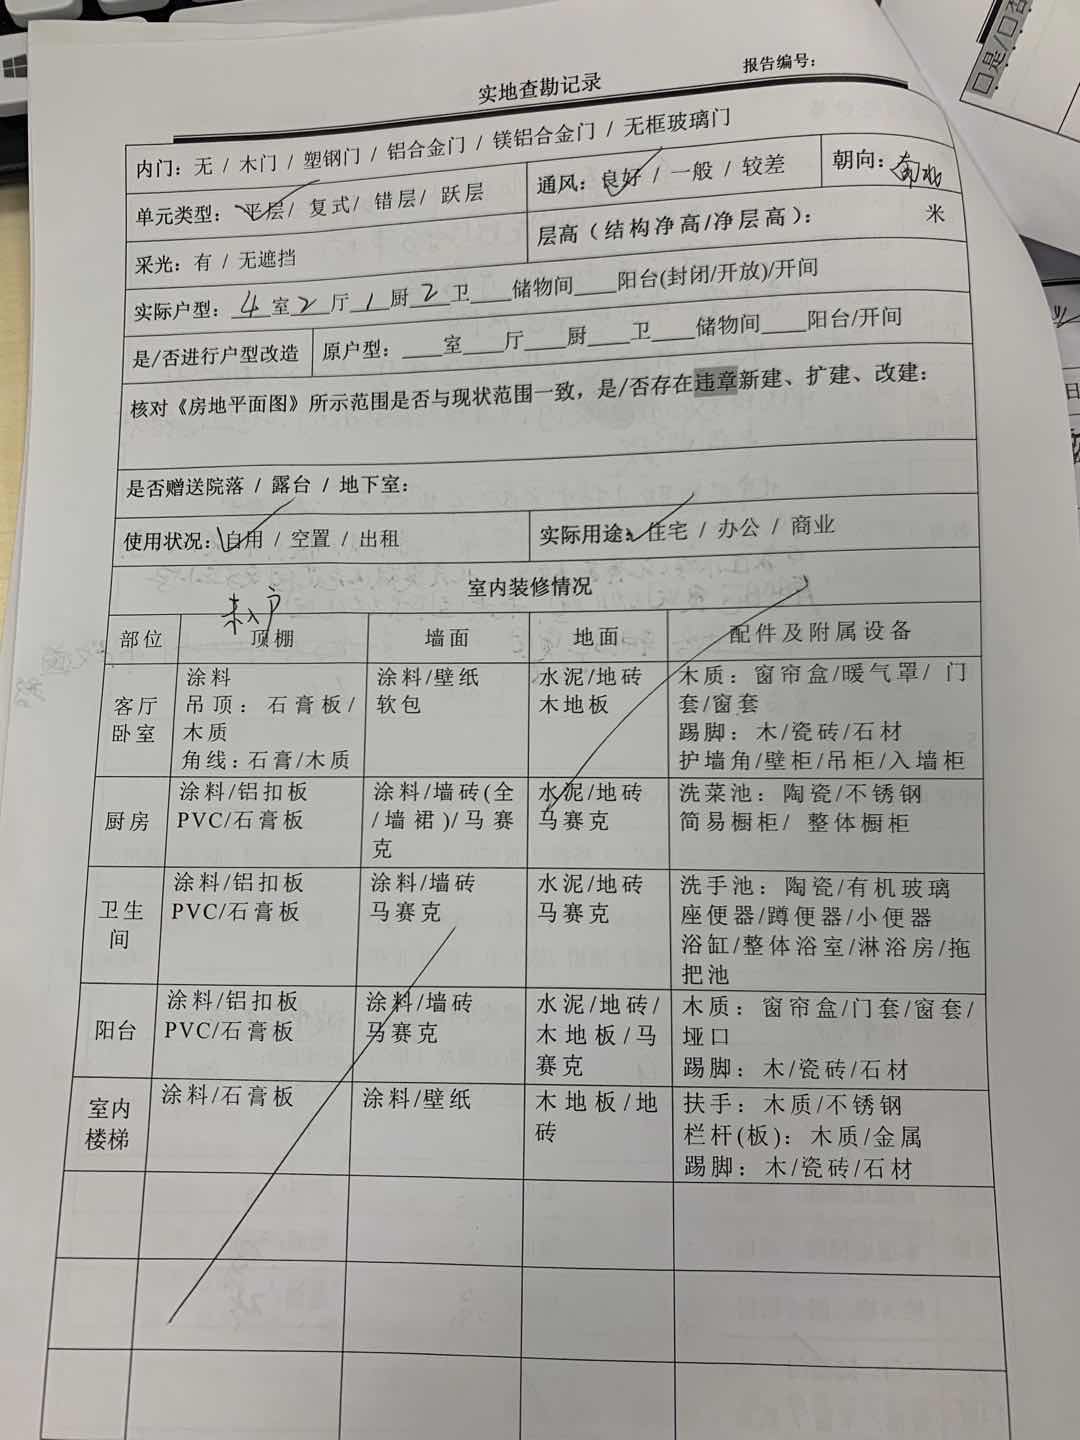 报告编号：
实地查勘记录
内门：无 / 木门 / 塑钢门 / 铝合金门 / 镁铝合金门 / 无框玻璃门
单元类型：平层/ 复式/ 错层/ 跃层
通风：良好 / 一般 / 较差
朝向：南北
采光：有 / 无遮挡
层高（结构净高/净层高）： 米
实际户型：4室2厅1厨2卫___储物间___阳台(封闭/开放)/开间
是/否进行户型改造
原户型：___室___厅___厨___卫___储物间___阳台/开间
核对《房地平面图》所示范围是否与现状范围一致，是/否存在违章新建、扩建、改建：
是否赠送院落 / 露台 / 地下室：
使用状况：自用 / 空置 / 出租
实际用途：住宅 / 办公 / 商业
室内装修情况
未入户
部位 顶棚 墙面 地面 配件及附属设备
客厅
卧室
涂料
吊顶：石膏板/
木质
角线：石膏/木质
涂料/壁纸
软包
水泥/地砖
木地板
木质：窗帘盒/暖气罩/ 门
套/窗套
踢脚：木/瓷砖/石材
护墙角/壁柜/吊柜/入墙柜
厨房
涂料/铝扣板
PVC/石膏板
涂料/墙砖(全
/墙裙)/马赛
克
水泥/地砖
马赛克
洗菜池：陶瓷/不锈钢
简易橱柜/ 整体橱柜
卫生
间
涂料/铝扣板
PVC/石膏板
涂料/墙砖
马赛克
水泥/地砖
马赛克
洗手池：陶瓷/有机玻璃
座便器/蹲便器/小便器
浴缸/整体浴室/淋浴房/拖
把池
阳台
涂料/铝扣板
PVC/石膏板
涂料/墙砖
马赛克
水泥/地砖/
木地板/马
赛克
木质：窗帘盒/门套/窗套/
垭口
踢脚：木/瓷砖/石材
室内
楼梯
涂料/石膏板
涂料/壁纸
木地板/地
砖
扶手：木质/不锈钢
栏杆(板)：木质/金属
踢脚：木/瓷砖/石材
口是/口否